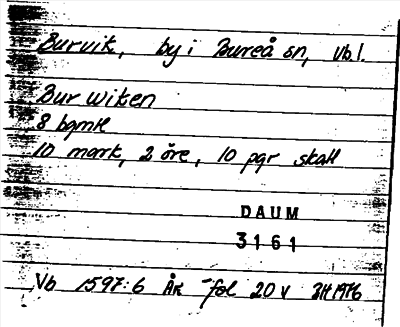 Burvik, by i Bureå sn, Vb l.
Bur wiken
8 bgmtl
10 mark, 2 öre, 10 pgr skatt
DAUM
3161
Vb 1597:6 ÅK fol 20 v